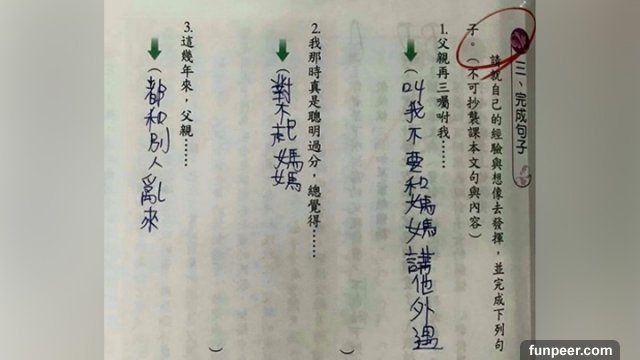 三、完成句子
請就自己的經驗與想像去發揮，並完成下列句
子。（不可抄襲課本文句與內容）
1.父親再三囑咐我……
（叫我不要和媽媽講他外遇
）
2.我那時真是聰明過分，總覺得……
（對不起媽媽
）
3.這幾年來，父親……
（都和別人亂來
）
funpeer.com